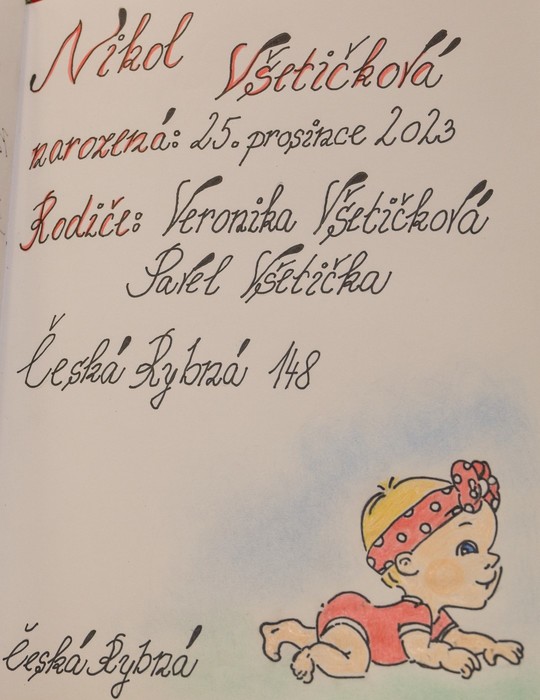 Nikol Všetičková
narozená: 25. prosince 2023
Rodiče: Veronika Všetičková
Pavel Všetička
Česká Rybná 148
Česká Rybná